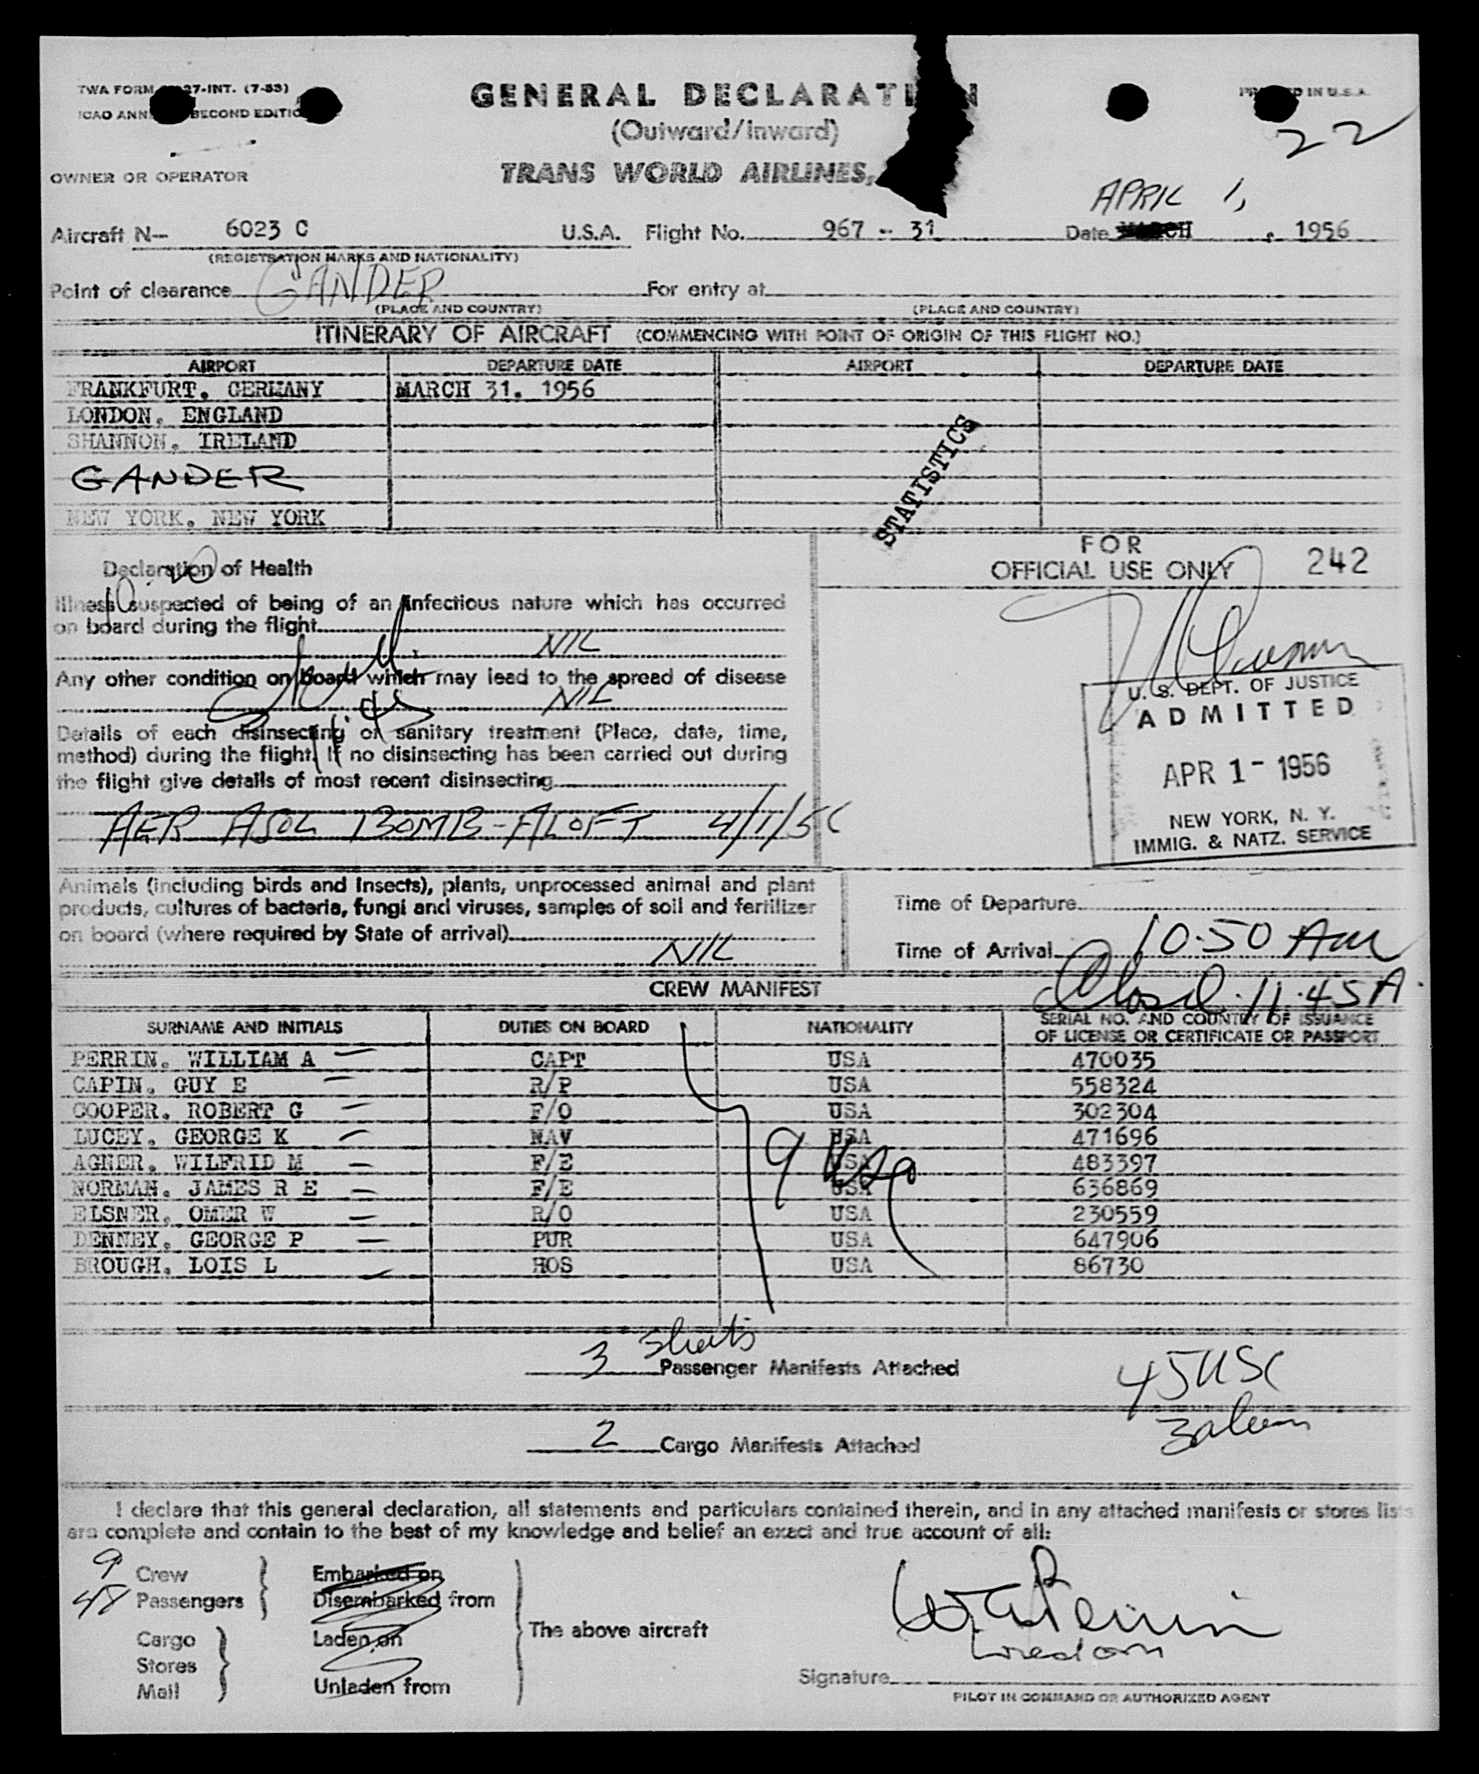 TWA FORM 27-INT. (7-53)
ICAO ANN SECOND EDITIO
GENERAL DECLARATI N
PR D IN U.S.A.
(Outward/Inward)
22
OWNER OR OPERATOR
TRANS WORLD AIRLINES,
APRIL 1,
Aircraft N— 6023 C U.S.A. Flight No. 967 - 31 Date MARCH , 1956
(REGISTRATION MARKS AND NATIONALITY)
Point of clearance GANDER For entry at
(PLACE AND COUNTRY) (PLACE AND COUNTRY)
ITINERARY OF AIRCRAFT (COMMENCING WITH POINT OF ORIGIN OF THIS FLIGHT NO.)
AIRPORT DEPARTURE DATE AIRPORT DEPARTURE DATE
FRANKFURT, GERMANY MARCH 31, 1956
LONDON, ENGLAND
SHANNON, IRELAND
GANDER
NEW YORK, NEW YORK
STATISTICS
FOR
OFFICIAL USE ONLY 242
Declaration of Health
Illness suspected of being of an infectious nature which has occurred
on board during the flight
NIL
Any other condition on board which may lead to the spread of disease
NIL
Details of each disinsecting or sanitary treatment (Place, date, time,
method) during the flight. If no disinsecting has been carried out during
the flight give details of most recent disinsecting
AER ASOL BOMB-ALOFT 4/1/56
U. S. DEPT. OF JUSTICE
ADMITTED
APR 1 - 1956
NEW YORK, N. Y.
IMMIG. & NATZ. SERVICE
Animals (including birds and insects), plants, unprocessed animal and plant
products, cultures of bacteria, fungi and viruses, samples of soil and fertilizer
on board (where required by State of arrival)
NIL
Time of Departure
Time of Arrival 10.50 AM
Closed. 11.45A.
CREW MANIFEST
SURNAME AND INITIALS DUTIES ON BOARD NATIONALITY SERIAL NO. AND COUNTRY OF ISSUANCE
OF LICENSE OR CERTIFICATE OR PASSPORT
PERRIN, WILLIAM A CAPT USA 470035
CAPIN, GUY E R/P USA 558324
COOPER, ROBERT G F/O USA 302304
LUCEY, GEORGE K NAV USA 471696
AGNER, WILFRID M F/E USA 483397
NORMAN, JAMES R E F/E USA 636869
ELSNER, OMER W R/O USA 230559
DENNEY, GEORGE P PUR USA 647906
BROUGH, LOIS L HOS USA 86730
9 USA
3 Sheets Passenger Manifests Attached
45 USC
3 alien
2 Cargo Manifests Attached
I declare that this general declaration, all statements and particulars contained therein, and in any attached manifests or stores lists
are complete and contain to the best of my knowledge and belief an exact and true account of all:
9 Crew Embarked on
48 Passengers Disembarked from
The above aircraft
Cargo Laden on
Stores
Mail Unladen from
W. A. Perrin
Signature
PILOT IN COMMAND OR AUTHORIZED AGENT